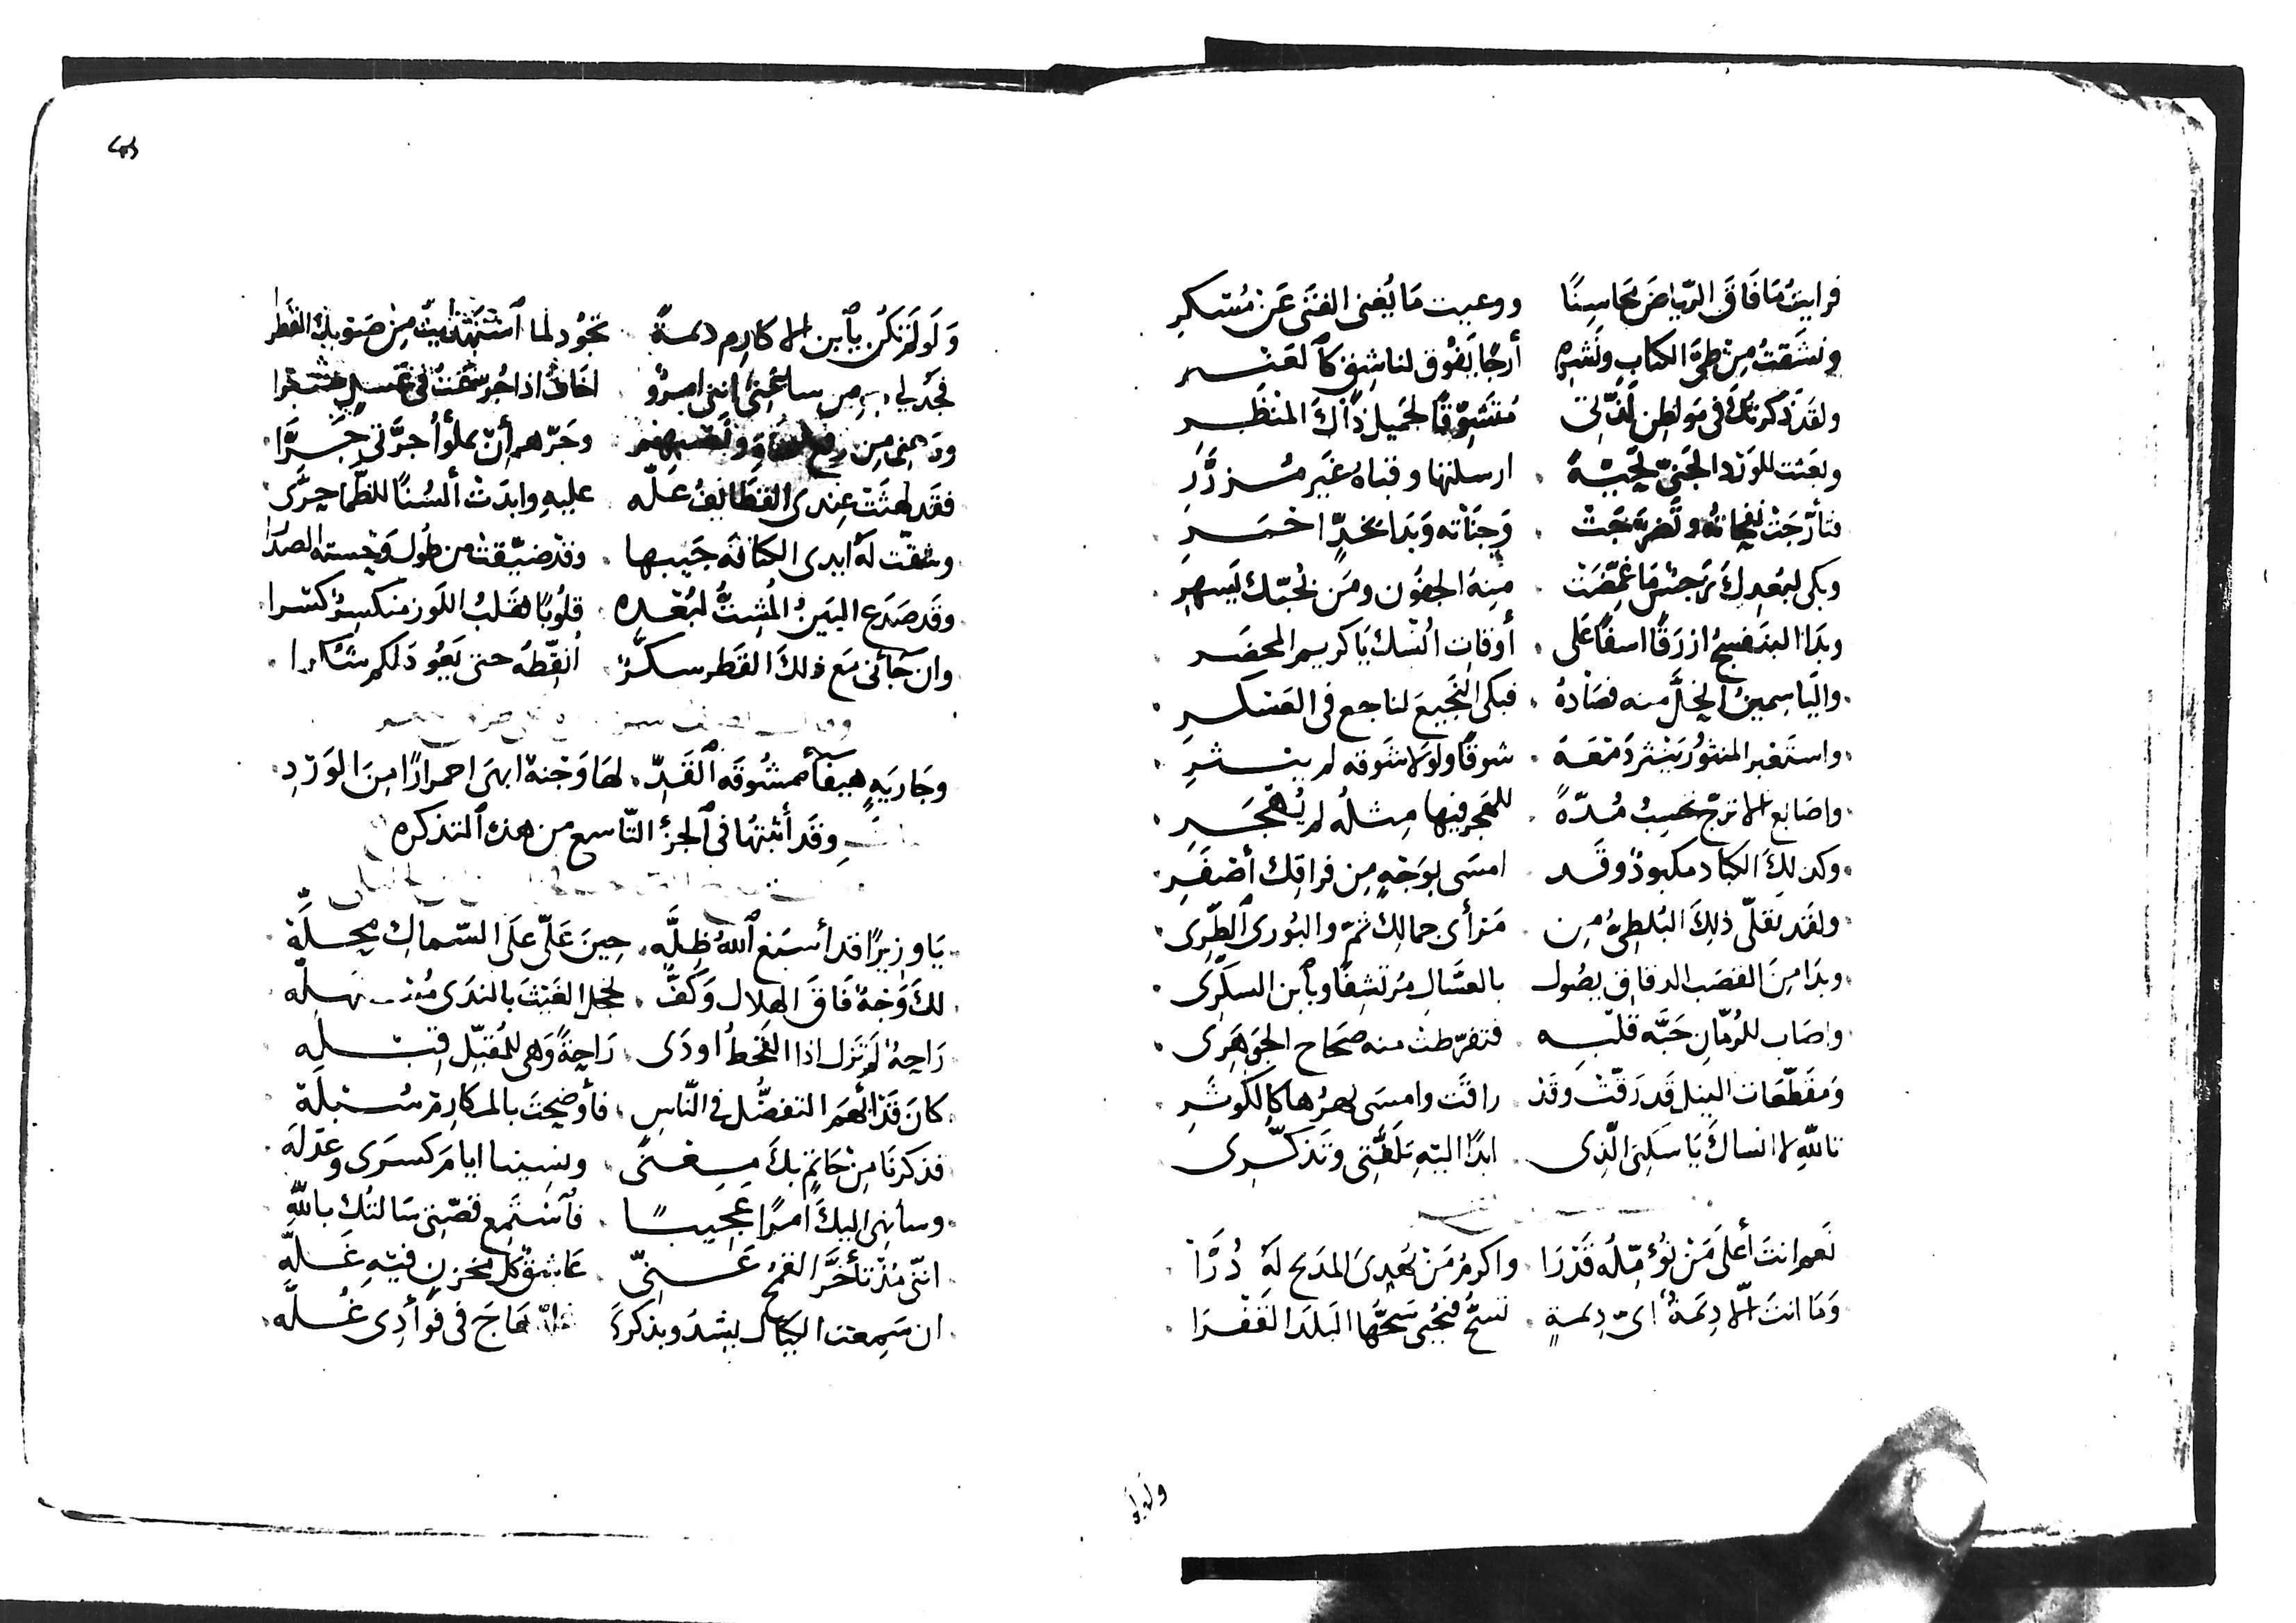 فرايتُ مَا فَاقَ الرّياضَ محَاسِنًا ووعيت مَا يُغنى الفتَى عَن مُسْكرِ
ونشَقتُ مِنْ طىّ الكتابِ ونَشرِهِ أرجًا يَفُوق لناشِقٍ كٱلعَنْبـرِ
ولقَدْ ذكرتُكَ فى مَواطِن لَذّتى مُتَشَوّقًا لجَميل ذَاكَ المنْظَـرِ
وبعَثت للوَرْد الجَنىّ تحَيّةً ارسلتها وقباهُ غَير مُـزرَّرِ
فتأرّجَتْ نفحاته وتضرّجَتْ وَجَنَاته وَبَدَا بخدٍّ احْمَـرِ
وبكى لبُعدِكَ نرجسٌ مَا غمّضَتْ مِنهُ الجفُون ومَن يُحبّك يَسهرِ
وبدَا البنَفسجُ ازرَقًا اسفًا عَلى أوقاتِ اُنسكَ يَا كريم المحضَـرِ
واليَاسمينُ انحلَّ منه فصَادهُ فبكى النَّجيعَ لناجع فى العَسْكـرِ
واستَعْبر المنثورُ يَنْثر دَمْعَهَ شوقًا ولَوَلا شَوقه لم يـنـثـرِ
واصَابع الاترجّ تحسِبُ مُدّةً للهَجر فيها مِثلُه لم يُهْجَـرِ
وكذلِكَ الكبّاد مكبودٌ وقَـد امسَى بوَجْهٍ مِن فراقِك أصْفَـرِ
ولقَد تَقلّى ذلِكَ البُلطىُّ مِـن مَرأى جمالِك ثمّ والبُورى ٱلطّرِى
وبدَا مِنَ القصَب الدقاق يصُول بالعسَّالِ مُرتشفًا وبٱبن السكّرِى
واصَاب للرُمّانِ حَبَّه قَلْبِـه فتفرّطت منه صحَاح الجوهَرِى
وَمقَطّعَات النيل قَد رَقّتْ وقَدْ راقَت وامسَى نهرُها كالكَوثَـرِ
تاللهِ لا انساكَ يَا سَكنى الّذِى ابدًا اليه تَلَفُّتِى وتَذكّـرِى
نَعم انتَ أعلَى مَنْ نُؤمّلُه قَدْرَا واكرمُ مَنْ يُهدِىَ المدَيح لَهُ دُرَّا
وَمَا انتَ الّا دِيمَةٌ اىّ دِيمةٍ تسحّ فيُحيى سَحُّها البَلدَ القَفْـرَا
وَلَو لَم تكُن يٱبن الاكارِم ديمـةً تجُود لما ٱستَهْدَيتُ مِنْ صَوبكَ القَطرا
فجُدْ لى اننى امرؤ اخَافُ اذا
ودَعنى مِن وجَرّهم أنْ يملؤُا جرَّتى جَـرَّا
فقَد لهثَتْ عِندى القطَايفُ علّه عليهِ وابدَتْ ألسُنًا للظّما حِرَّى
وشقّت لهَ ايدى الكنافَة جَيبها وقدْ ضيّقت من طُول الصدرَا
وقَد صَدَع البَينُ المُشِتُّ لبُعْدِهِ قلوُبًا فقَلبُ اللّوز منكسرٌ كسْرا
وان جَاءنى مَع ذلكَ القَطر سكّـرٌ اُنقّطهُ حتى يَعُود لكم شكرا
وجَاريَةٍ هيفآء ممشُوقَه ٱلقَدّ لهَا وَجْنة ابهَى احمرارًا مِنَ الوَرْدِ
وقَد أثبتهُا فى ٱلجزْء التّاسع من هذه ٱلتذكره
يَا وَزيرًا قد أسبَغ ٱللهُ ظِلّهِ حِينَ عَلّى علَى السّماكِ محِـلّهْ
لكَ وَجهٌ فَاقَ الهِلال وَكفٌّ تخجل الغَيْثَ بالندَى
رَاحةٌ لَم تَزل اذا القَحطُ اودَى رَاحةً وَهى للمُقبّل قِبْـلـه
كانَ قَدْ التفضُّل فى النّاسِ فأوضحتَ بالمكارِم سُـبْلَهْ
فذكرنَا مِنْ حَاتمٍ بكَ مـعـنًى ونسِينا ايامَ كسَرى وعَدْلَه
وسأنهى اليكَ أمرًا عَجيبًـا فٱسْتَمِع قصّتى سَالتُك باللهِ
اننّى مُذْ تأخَّرَ القمْحُ عَـنّى عَاشِقٌ كل مخزنٍ فيهِ غَـلّه
ان سَمِعت الكيّال يشدُو بذكراهَ هَاجَ فى فوأدِى غُـلّه
ولو لم